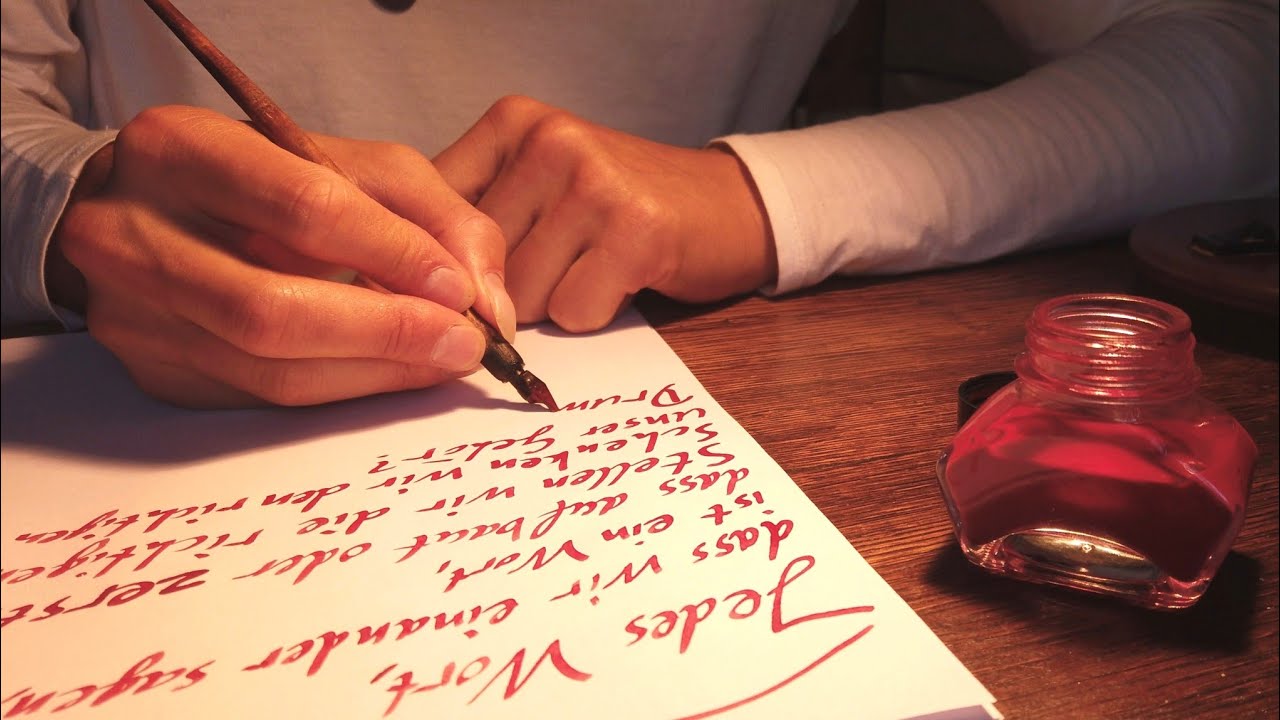 Jedes Wort,
dass wir einander sagen,
ist ein Wort,
dass aufbaut oder
Stellen wir die richtigen
Schenken wir den richtigen
unser Gehör?
Drum